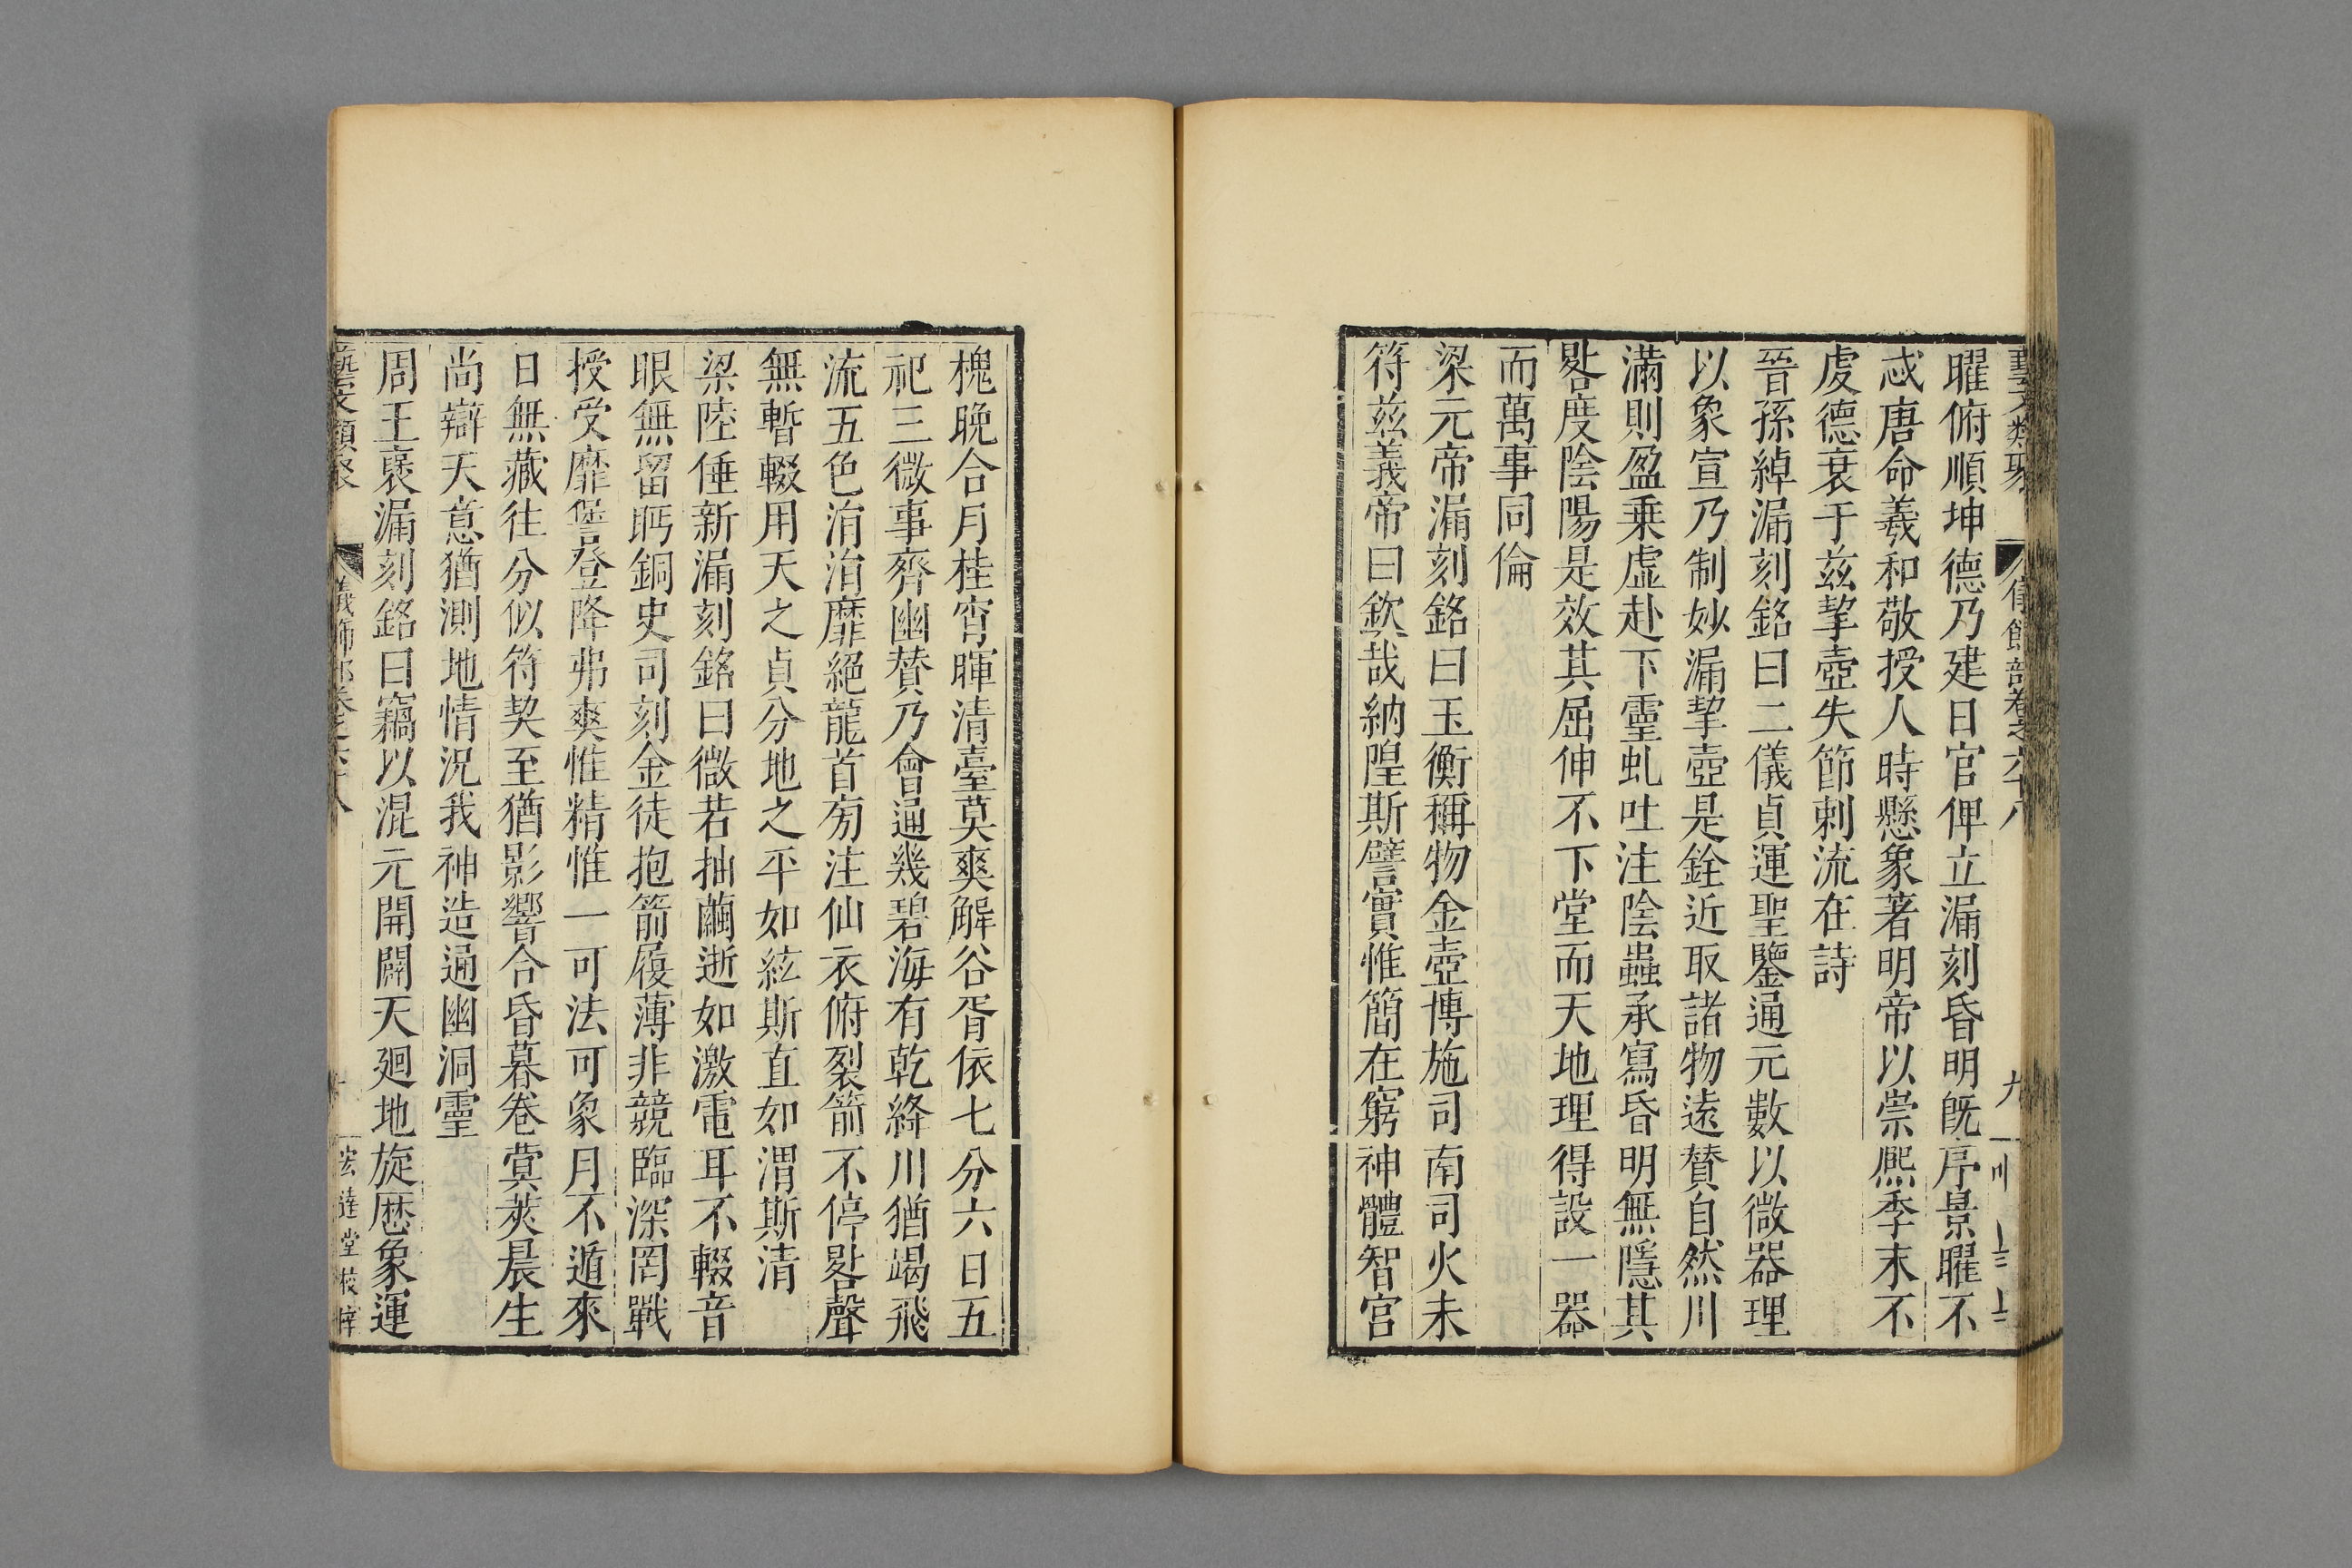 藝文類聚 儀飾部卷之六十八 九
曜俯順坤德乃建日官俾立漏刻昏明旣序景曜不
忒唐命羲和敬授人時懸象著明帝以崇熈季末不
虔德衰于兹挈壺失節刺流在詩
晉孫綽漏刻銘曰二儀貞運聖鑒通元數以微器理
以象宣乃制妙漏挈壺是銓近取諸物遠賛自然川
滿則盈乗虛赴下靈虬吐注陰蟲承寫昏明無隱其
晷度陰陽是效其屈伸不下堂而天地理得設一器
而萬事同倫
梁元帝漏刻銘曰玉衡稱物金壺博施司南司火未
符兹義帝曰欽哉納隍斯譬實惟簡在窮神體智宫
槐晚合月桂宵暉清臺莫爽解谷胥依七分六日五
祀三微事齊幽賛乃會通幾碧海有乾絳川猶竭飛
流五色涓涓靡絕龍首旁注仙衣俯裂箭不停晷聲
無暫輟用天之貞分地之平如絃斯直如渭斯清
梁陸倕新漏刻銘曰微若抽繭逝如激電耳不輟音
眼無留眄銅史司刻金徒抱箭履薄非競臨深罔戰
授受靡諐登降弗爽惟精惟一可法可象月不遁來
日無藏往分似符契至猶影響合昏暮卷蓂莢晨生
尚辯天意猶測地情況我神造通幽洞靈
周王褒漏刻銘曰竊以混元開闢天廻地旋厯象運
藝文類聚 儀飾部卷之六十八 十 宏達堂校梓